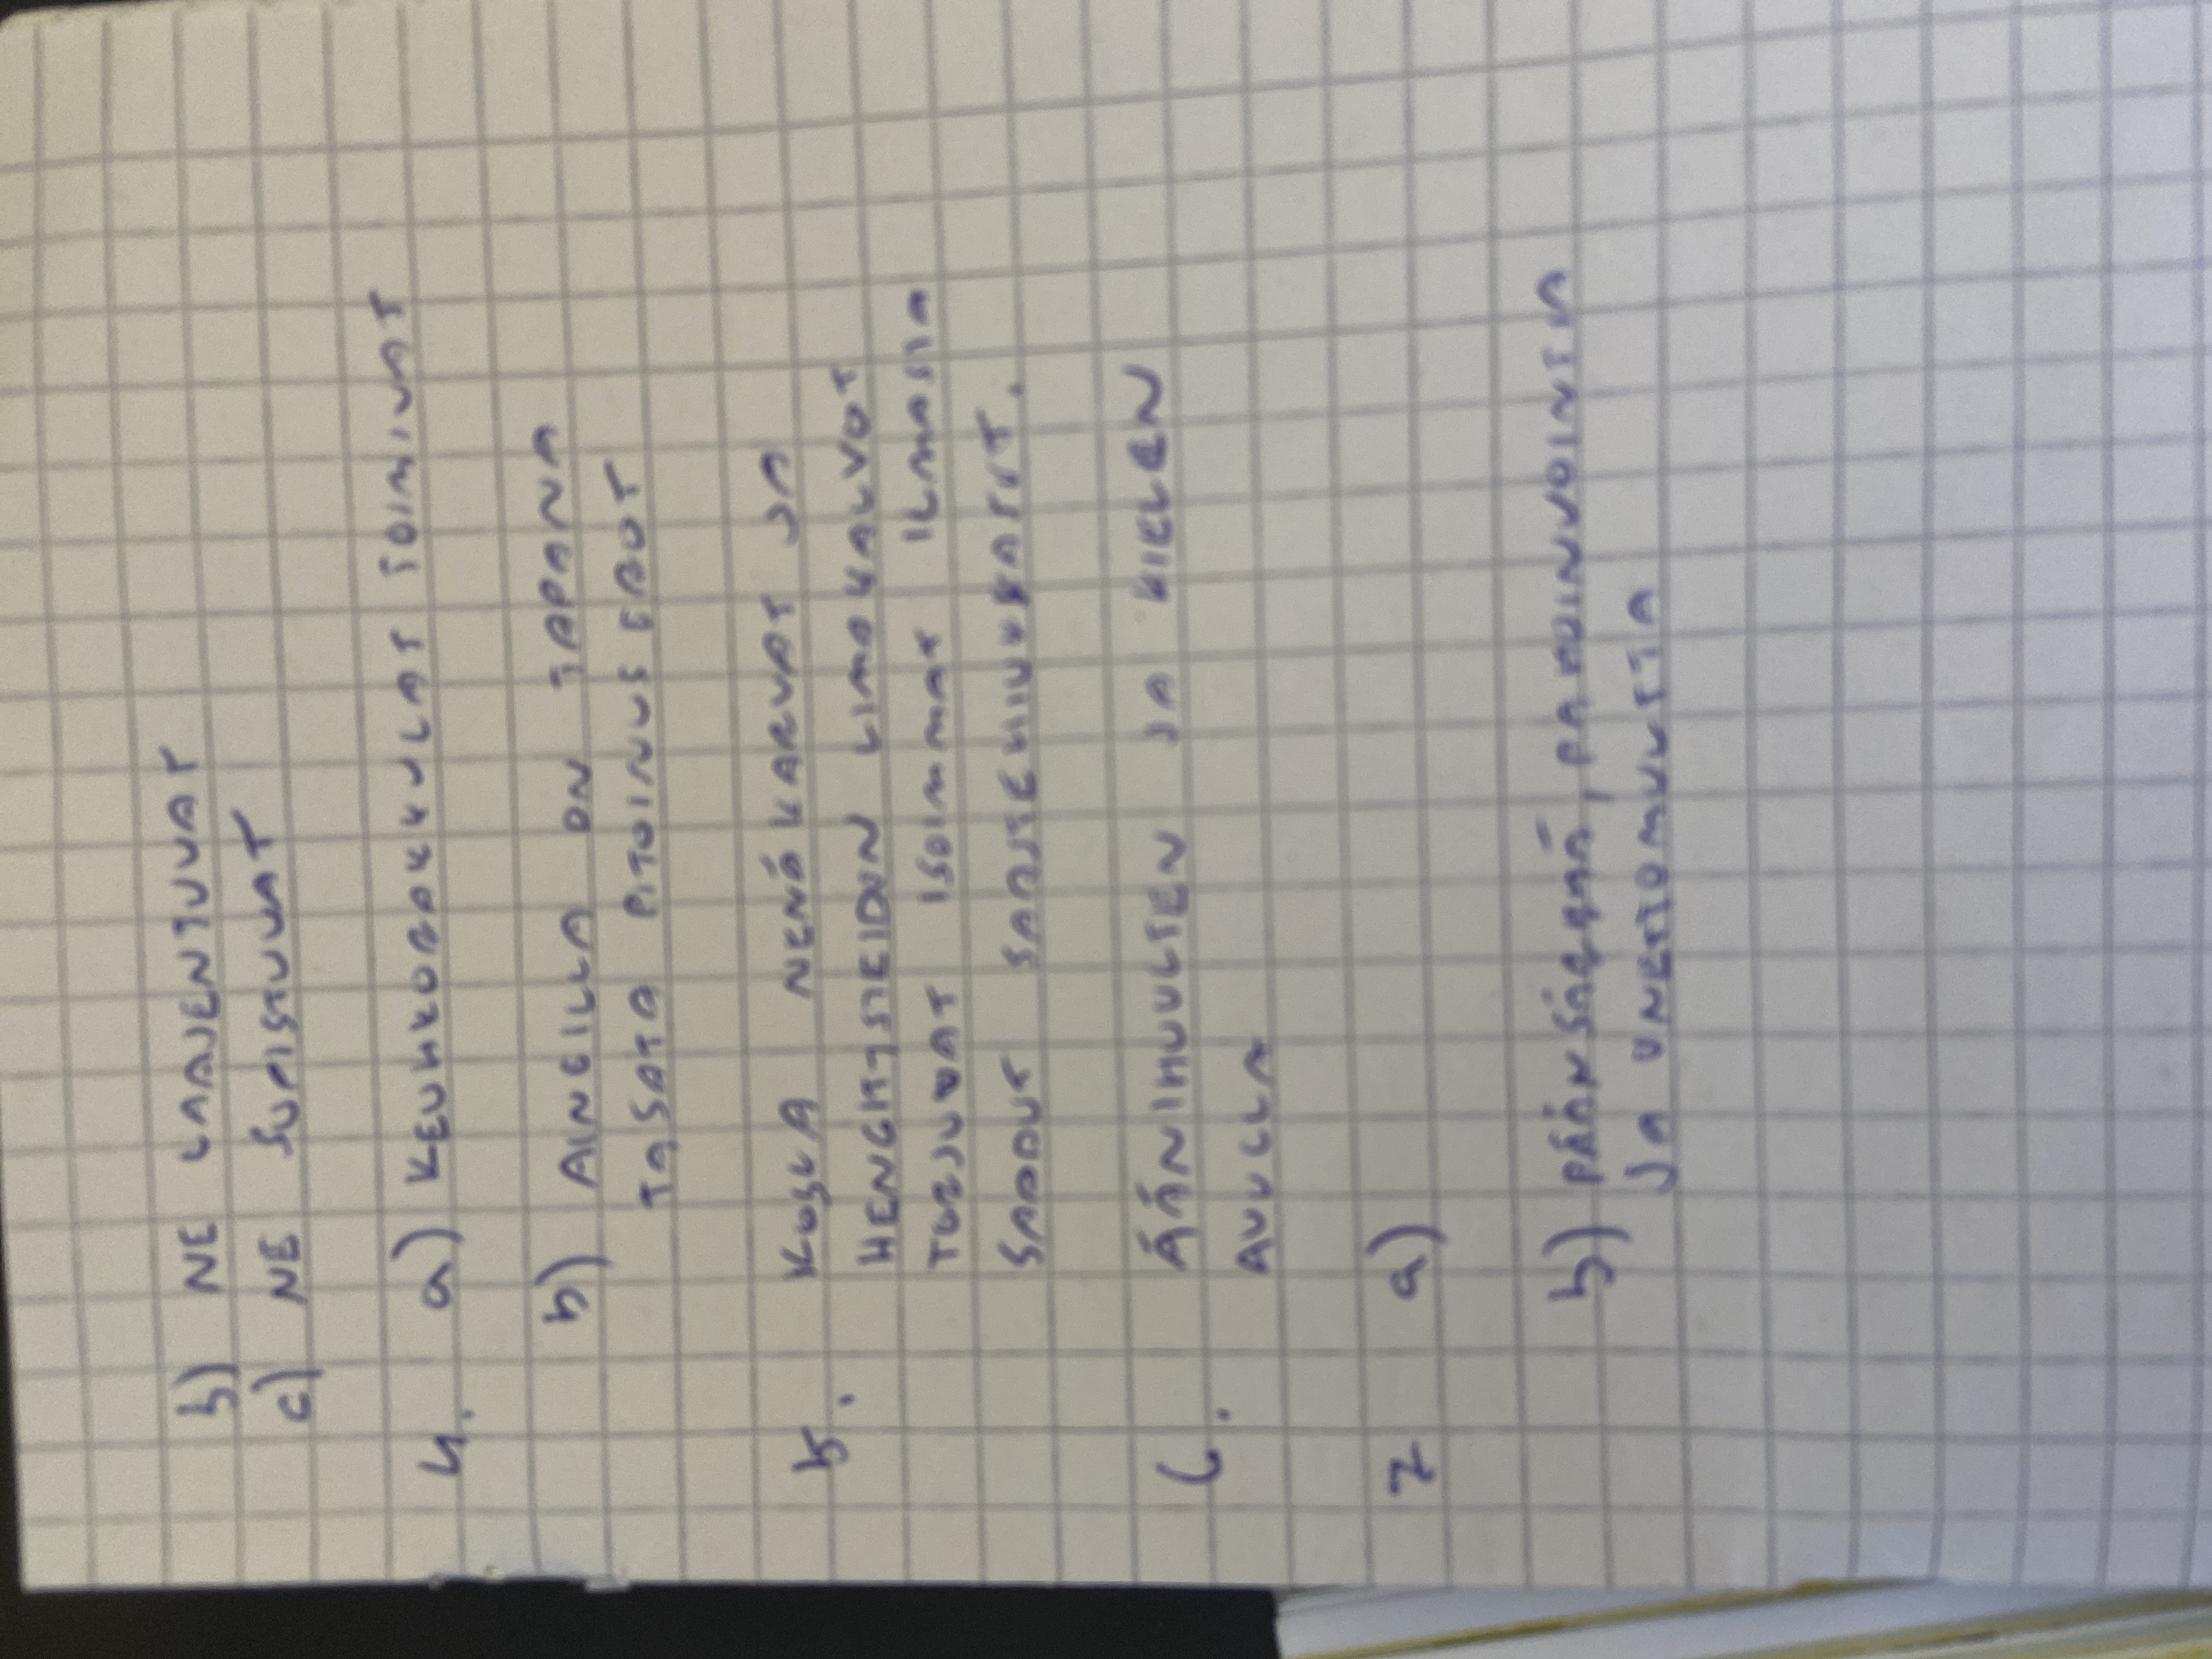 b) NE LAAJENTUVAT
c) NE SUPISTUVAT
4. a) KEUHKORAKKULAT TOIMIVAT
b) AINEILLA ON TAPANA
TASATA PITOISUUSEROT
5. KOSKA NENÄKARVAT JA
HENGITYSTEIDEN LIMAKALVOT
TORJUVAT ISOIMMAT ILMASTA
SAADUT SAASTEHIUKKASET.
6. ÄÄNIHUULTEN JA KIELEN
AVULLA
7 a)
b) PÄÄNSÄRKYÄ, PAHOINVOINTIA
JA UNETTOMUUTTA